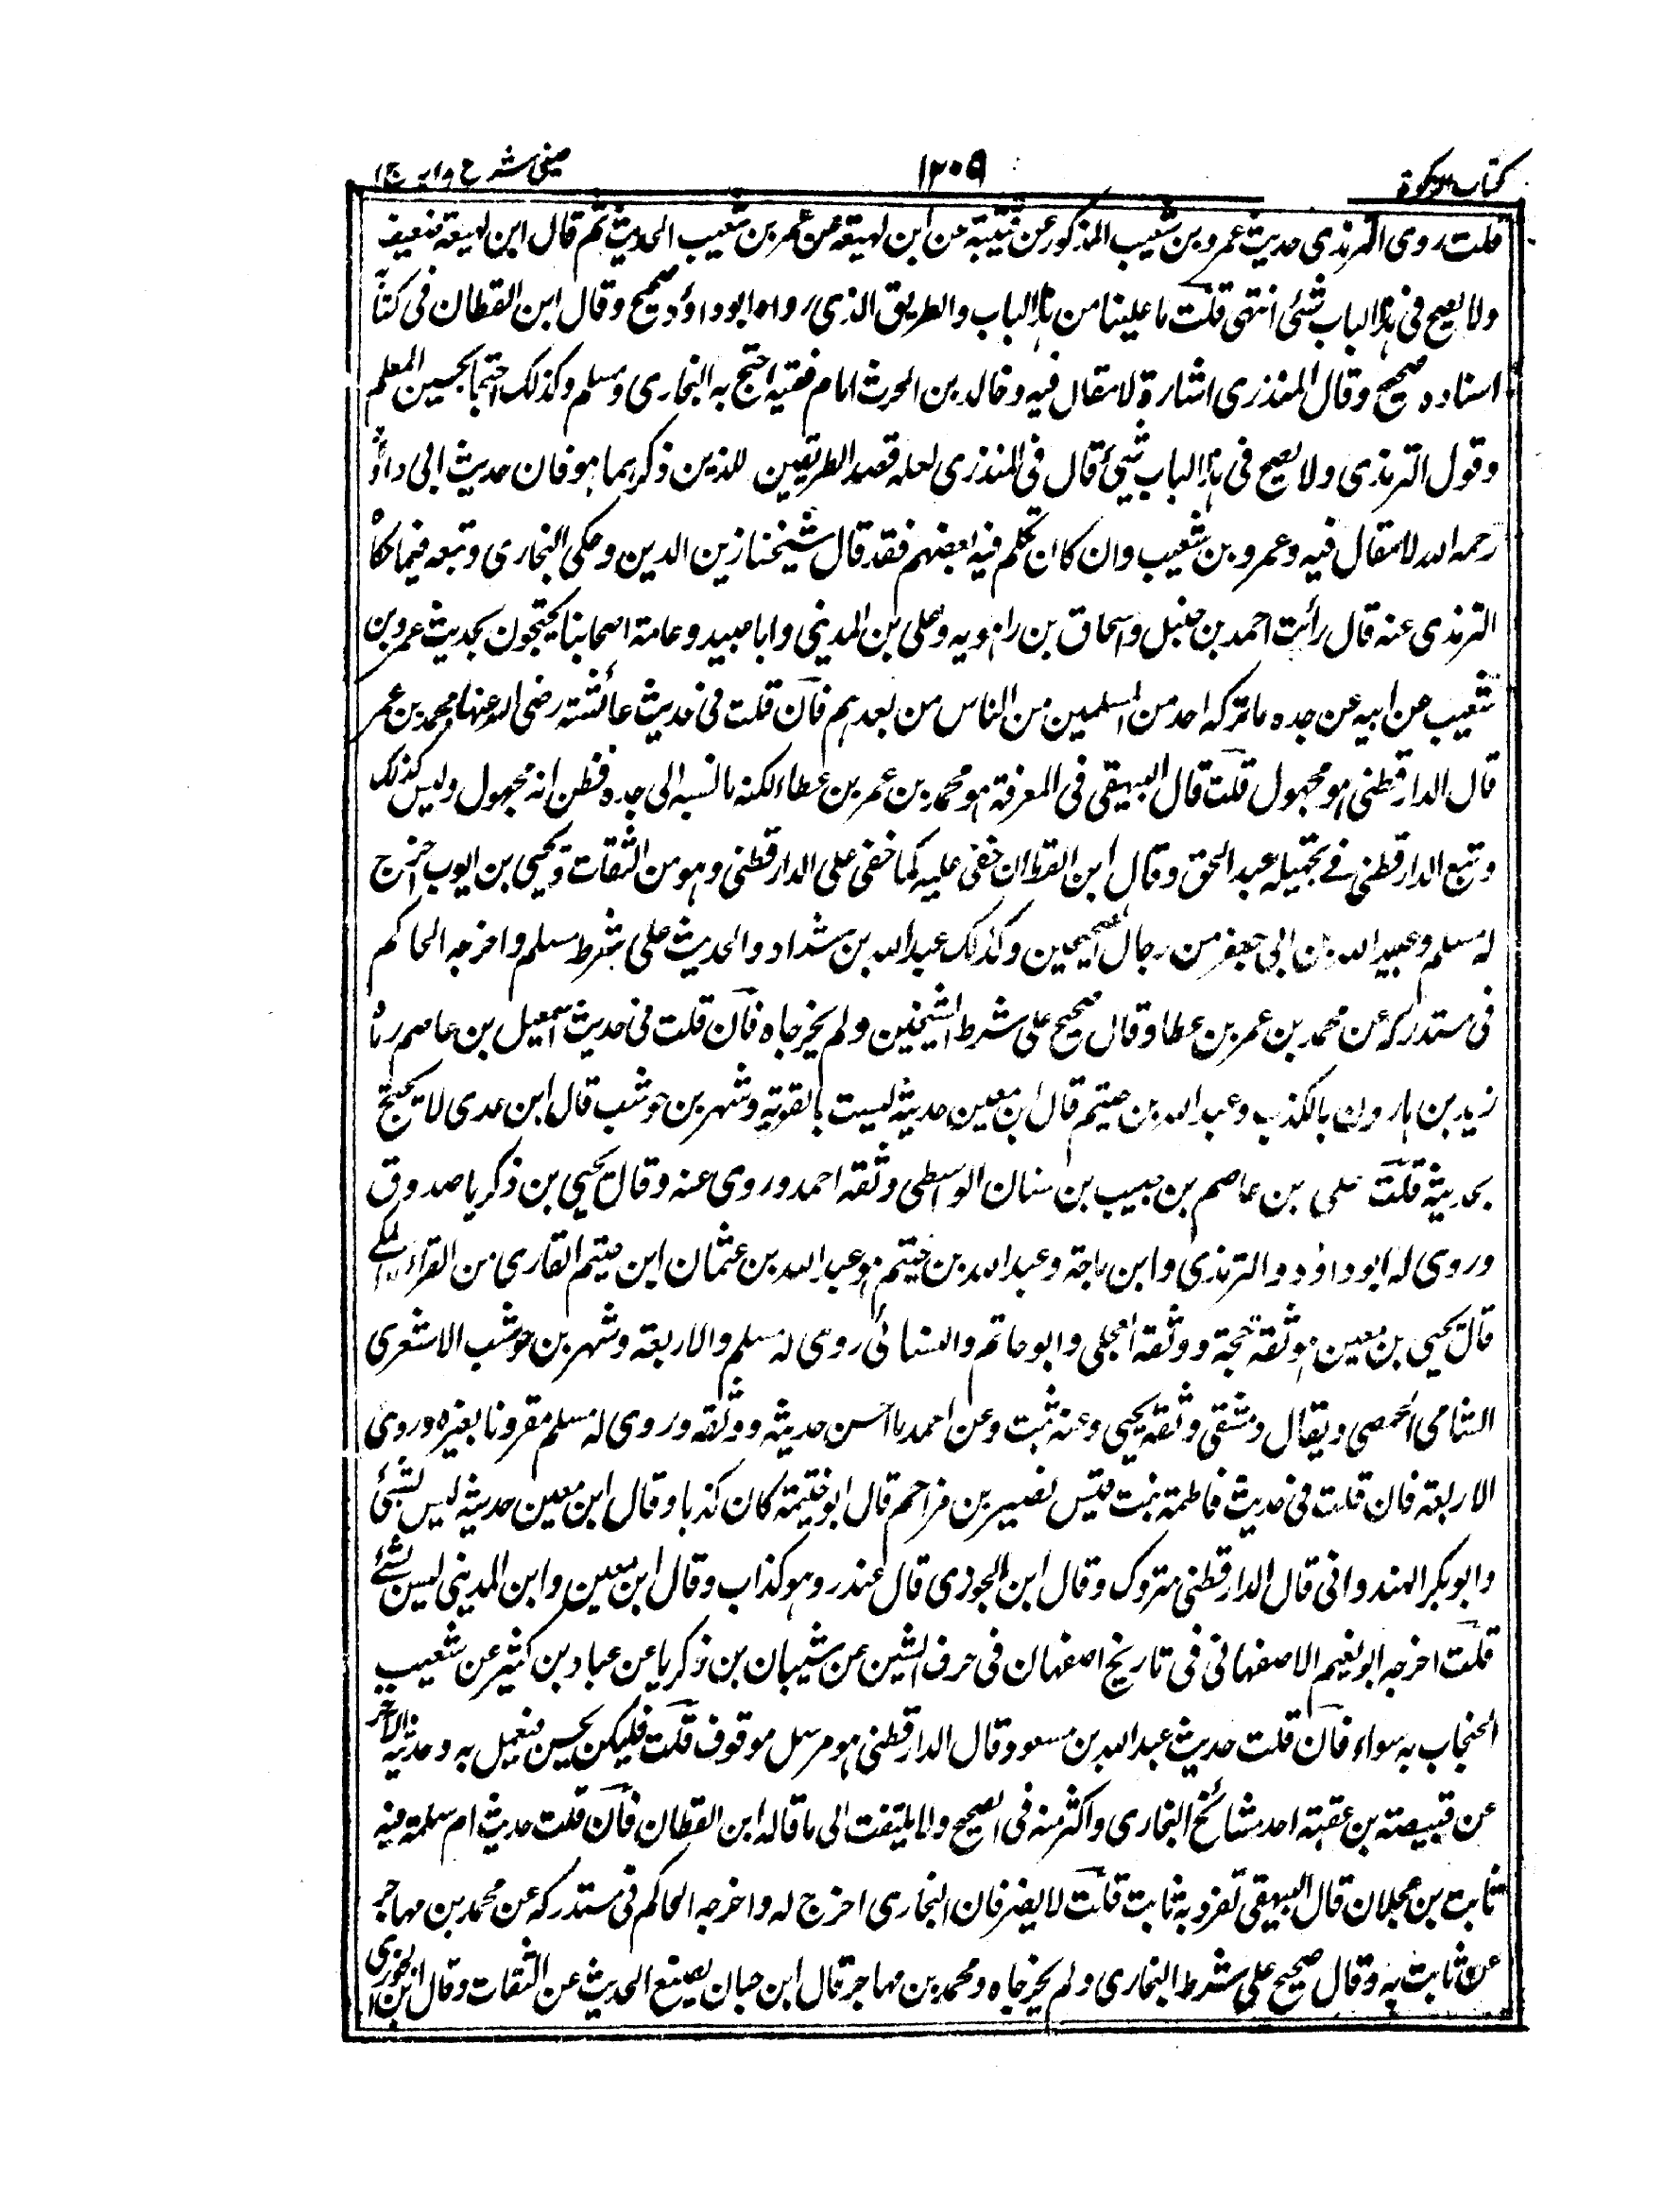 كتاب الزكوة
١٢٠٩
عينى شرح هدايه ج ١
قلت روى الترمذى حديث عمرو بن شعيب المذكور عن قتيبة عن ابن لهيعة عن عمر بن شعيب الحديث ثم قال ابن لهيعة ضعيف
ولا يصح فى هذا الباب شئى انتهى قلت ما علينا من هذا الباب والطريق الذى رواه ابو داؤد صحيح وقال ابن القطان فى كتابه
اسناده صحيح وقال المنذرى اشارة لا مقال فيه وخالد بن الحرث امام فقيه احتج به البخارى ومسلم وكذلك احتجا بحسين المعلم
وقول الترمذى ولا يصح فى هذا الباب شيئ قال فى المنذرى لعله قصد الطريقين للذين ذكرهما هو فان حديث ابى داؤد
رحمه الله لا مقال فيه وعمرو بن شعيب وان كان تكلم فيه بعضهم فقد قال شيخنا زين الدين وحكى البخارى وتبعه فيما حكاه
الترمذى عنه قال رأيت احمد بن حنبل واسحاق بن راهويه وعلى بن المدينى وابا عبيد وعامة اصحابنا يحتجون بحديث عمرو بن
شعيب عن ابيه عن جده ما تركه احد من المسلمين من الناس من بعدهم فان قلت فى حديث عائشته رضى الله عنها محمد بن عمر
قال الدارقطنى هو مجهول قلت قال البيهقى فى المعرفة هو محمد بن عمر بن عطاء لكنه ما نسبه الى جده فظن انه مجهول وليس كذلك
وتبع الدارقطنى فے تجهيله عبد الحق وقال ابن القطان خفى عليه كما خفى على الدارقطنى وهو من الثقات ويحيى بن ايوب اخرج
له مسلم وعبيد الله بن ابى جعفر من رجال الصحيحين وكذلك عبد الله بن شداد والحديث على شرط مسلم واخرجه الحاكم
فى مستدركه عن محمد بن عمر بن عطا وقال صحيح على شرط الشيخين ولم يخرجاه فان قلت فى حديث اسمعيل بن عاصم رماه
زيد بن هارون بالكذب وعبد الله بن خثيم قال ابن معين حديثه ليست بالقوية وشهر بن حوشب قال ابن عدى لا يحتج
بحديثه قلت على بن عاصم بن حبيب بن سنان الواسطى وثقه احمد وروى عنه وقال يحيى بن ذكريا صدوق
وروى له ابو داؤد والترمذى وابن ماجة وعبد الله بن خثيم هو عبد الله بن عثمان ابن خثيم القارى من القراء المكے
قال يحيى بن معين هو ثقة حجة ووثقه العجلى وابو حاتم والنسائى روى له مسلم والاربعة وشهر بن حوشب الاشعرى
الشامى الحمصى ويقال دمشقى وثقه يحيى وعنه ثبت وعن احمد ما احسن حديثه ووثقه وروى له مسلم مقرونا بغيره وروى
الاربعة فان قلت فى حديث فاطمة بنت قيس نصير بن مزاحم قال ابو خثيمة كان كذبا وقال ابن معين حديثه ليس بشئى
وابو بكر الهندوانى قال الدارقطنى متروك وقال ابن الجوزى قال غندر وهو كذاب وقال ابن معين وابن المدينى ليس بشئے
قلت اخرجه ابو نعيم الاصفهانى فى تاريخ اصفهان فى حرف الشين عن شيبان بن زكريا عن عباد بن كثير عن شعيب
الحنجاب به سواء فان قلت حديث عبد الله بن مسعود قال الدارقطنى هو مرسل موقوف قلت فليكن يحسن فيعمل به وحديثه الآخر
عن قبيصته بن عقبته احد مشائخ البخارى واكثر منه فى الصحيح ولا يلتفت الى ما قاله ابن القطان فان قلت حديث ام سلمة فيه
ثابت بن عجلان قال البيهقى تفرد به ثابت قلت لا يضر فان البخارى اخرج له واخرجه الحاكم فى مستدركه عن محمد بن مهاجر
عن ثابت به وقال صحيح على شرط البخارى ولم يخرجاه ومحمد بن مهاجر قال ابن حبان يضع الحديث عن الثقات وقال ابن الجوزى